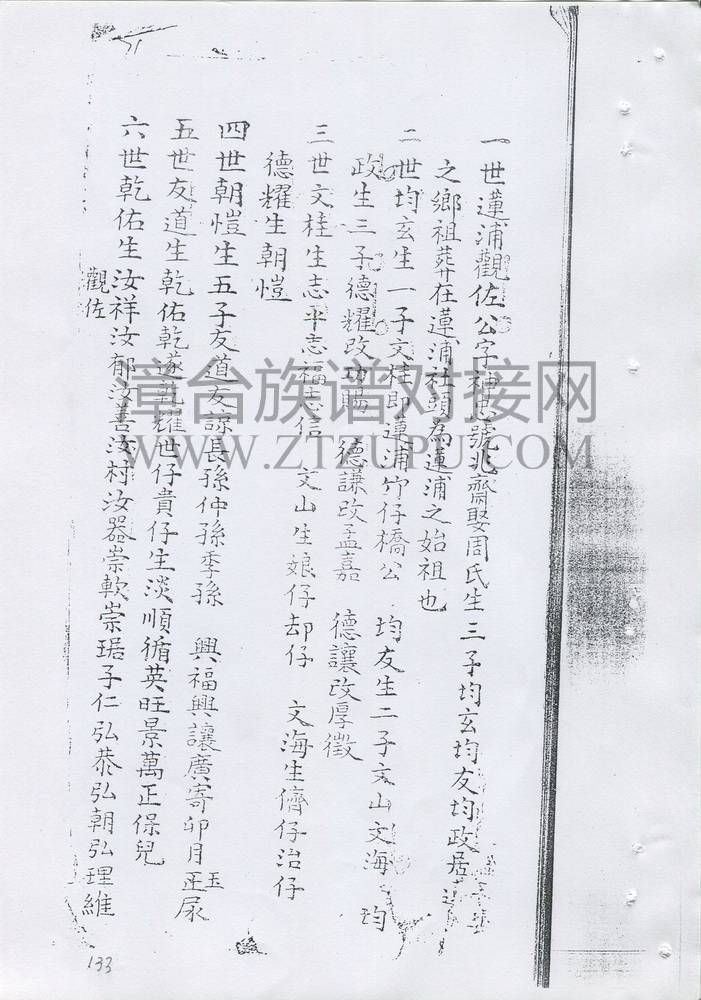 一世蓮浦觀佐公字神 號兆齋娶周氏生三子均玄均友均政居
之鄉祖葬在蓮浦社頭為蓮浦之始祖也
二世均玄生一子文桂即蓮浦竹仔橋公 均友生二子文山文海 均
政生三子德耀改功賜 德謙改孟嘉 德讓改厚徵
三世文桂生志平志福志信 文山生娘仔却仔 文海生儕仔治仔
德耀生朝愷
四世朝愷生五子友道友諒長孫仲孫季孫 興福興讓廣寄卯月正玉尿
五世友道生乾佑乾遂乾耀世仔貴仔生淡順循英旺景萬正保兒
六世乾佑生汝祥汝郁汝善汝材汝器崇軟崇琚子仁弘恭弘朝弘理維
觀佐
133
漳台族谱对接网
WWW.ZTZUPU.COM